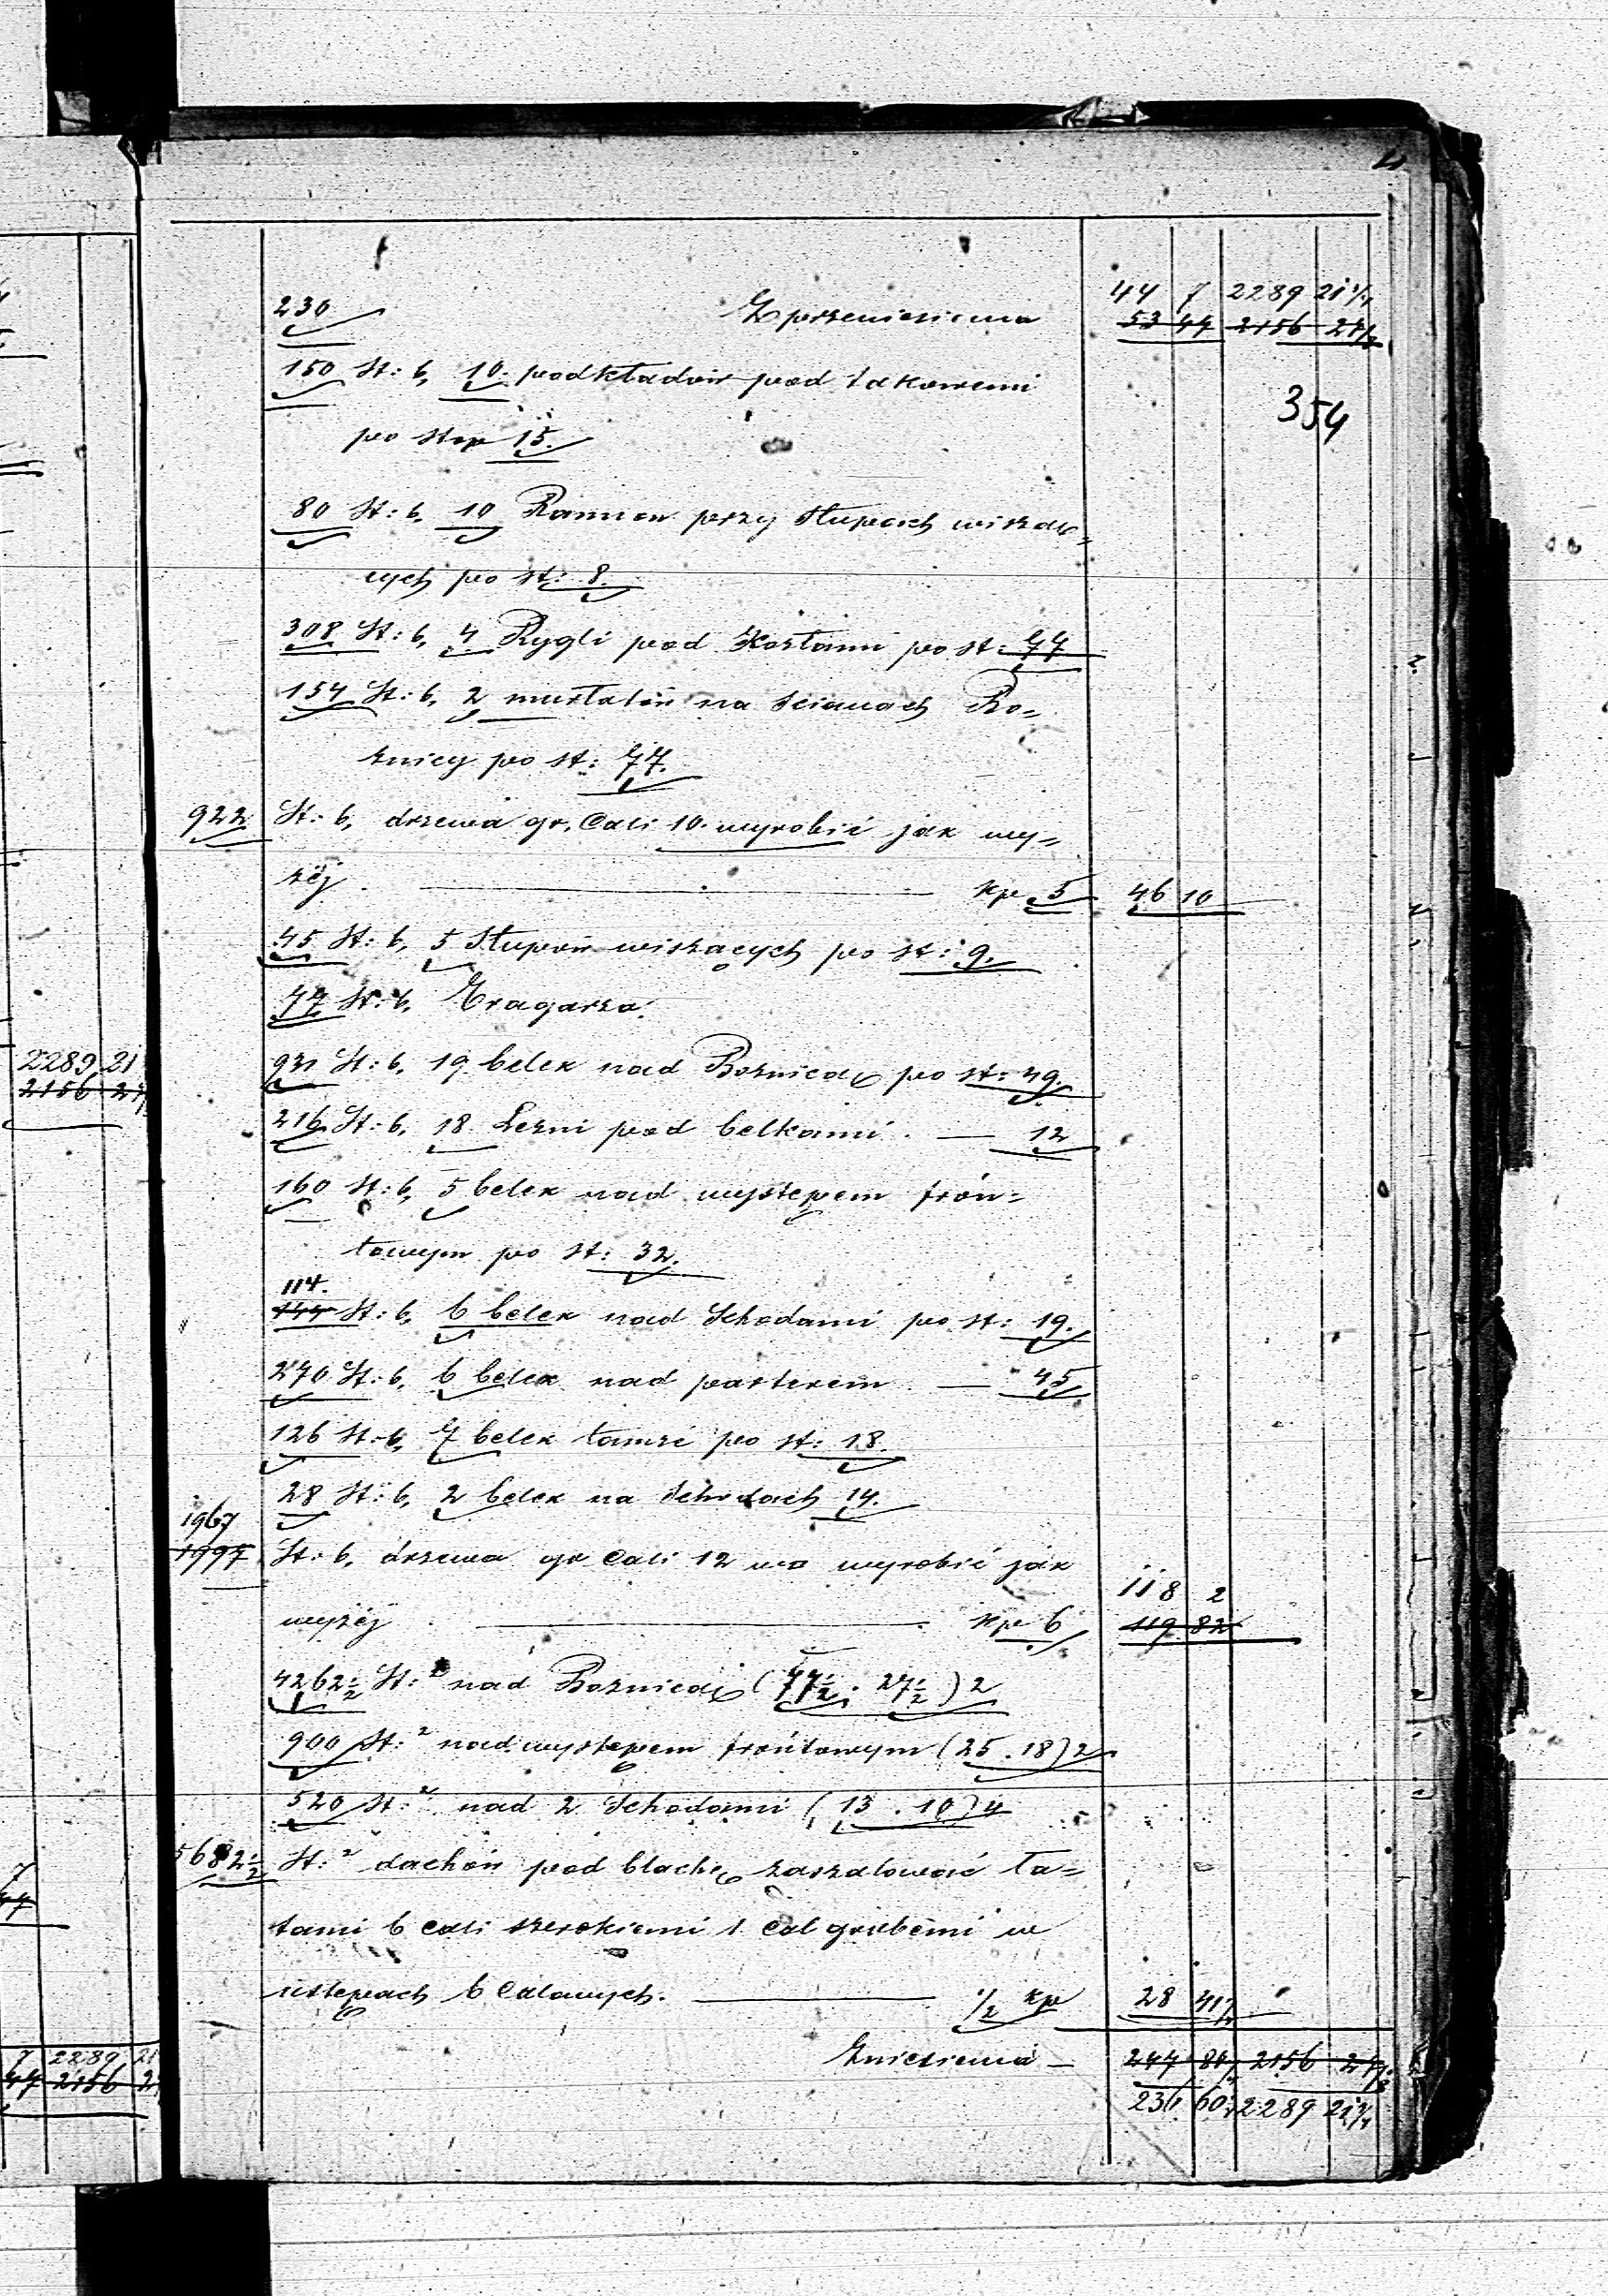 4
230 Z przeniesienia 44 7 2289 21½
53 47 2156 27½
150 St: b, 10. podkładów pod takowemi
354
po stop 15.
80 St: b, 10 Ramion przy słupach wiszą=
cych po st: 8.
308 St: b, 4 Rygli pod Kozłami po st: 77
154 St: b, 2 murłatów na ścianach Bo=
żnicy po st: 77.
922 St: b, drzewa gr, Cali 10. wyrobić jak wy=
żéj kp 5 46 10
45 St: b, 5 Słupów wiszących po st: 9.
77 St: b, Tragarza.
931 St: b, 19 belek nad Bożnicą po st: 49.
2289 21
2156 27
216 St: b, 18 Leżni pod belkami — 12
160 St: b, 5 belek nad występem frón=
towym po st: 32.
114.
144 St: b, 6 belek nad Schodami po st: 19.
270 St: b, 6 belek nad parterem — 45
126 St: b, 7 belek tamże po st: 18.
28 St: b, 2 belek na Schodach 14.
1967
1997 St: b, drzewa gr Cali 12 wo wyrobić jak
118 2
wyżéj kp 6 119 82
4262½ St:² nad Bożnicą (77½ . 27½) 2
900 St:² nad występem frontowym (25 . 18) 2
520 St:² nad 2 Schodami (13 . 10) 4
5682½ St:² dachów pod blachę zaszalować ła=
tami 6 cali szerokiemi 1 cal grubemi w
ustępach 6 Calowych. ½ kp 28 41½
Zniesienia — 247 80½ 2156 27½
7 2289 21
47 2156 2
236 60½ 2289 21½